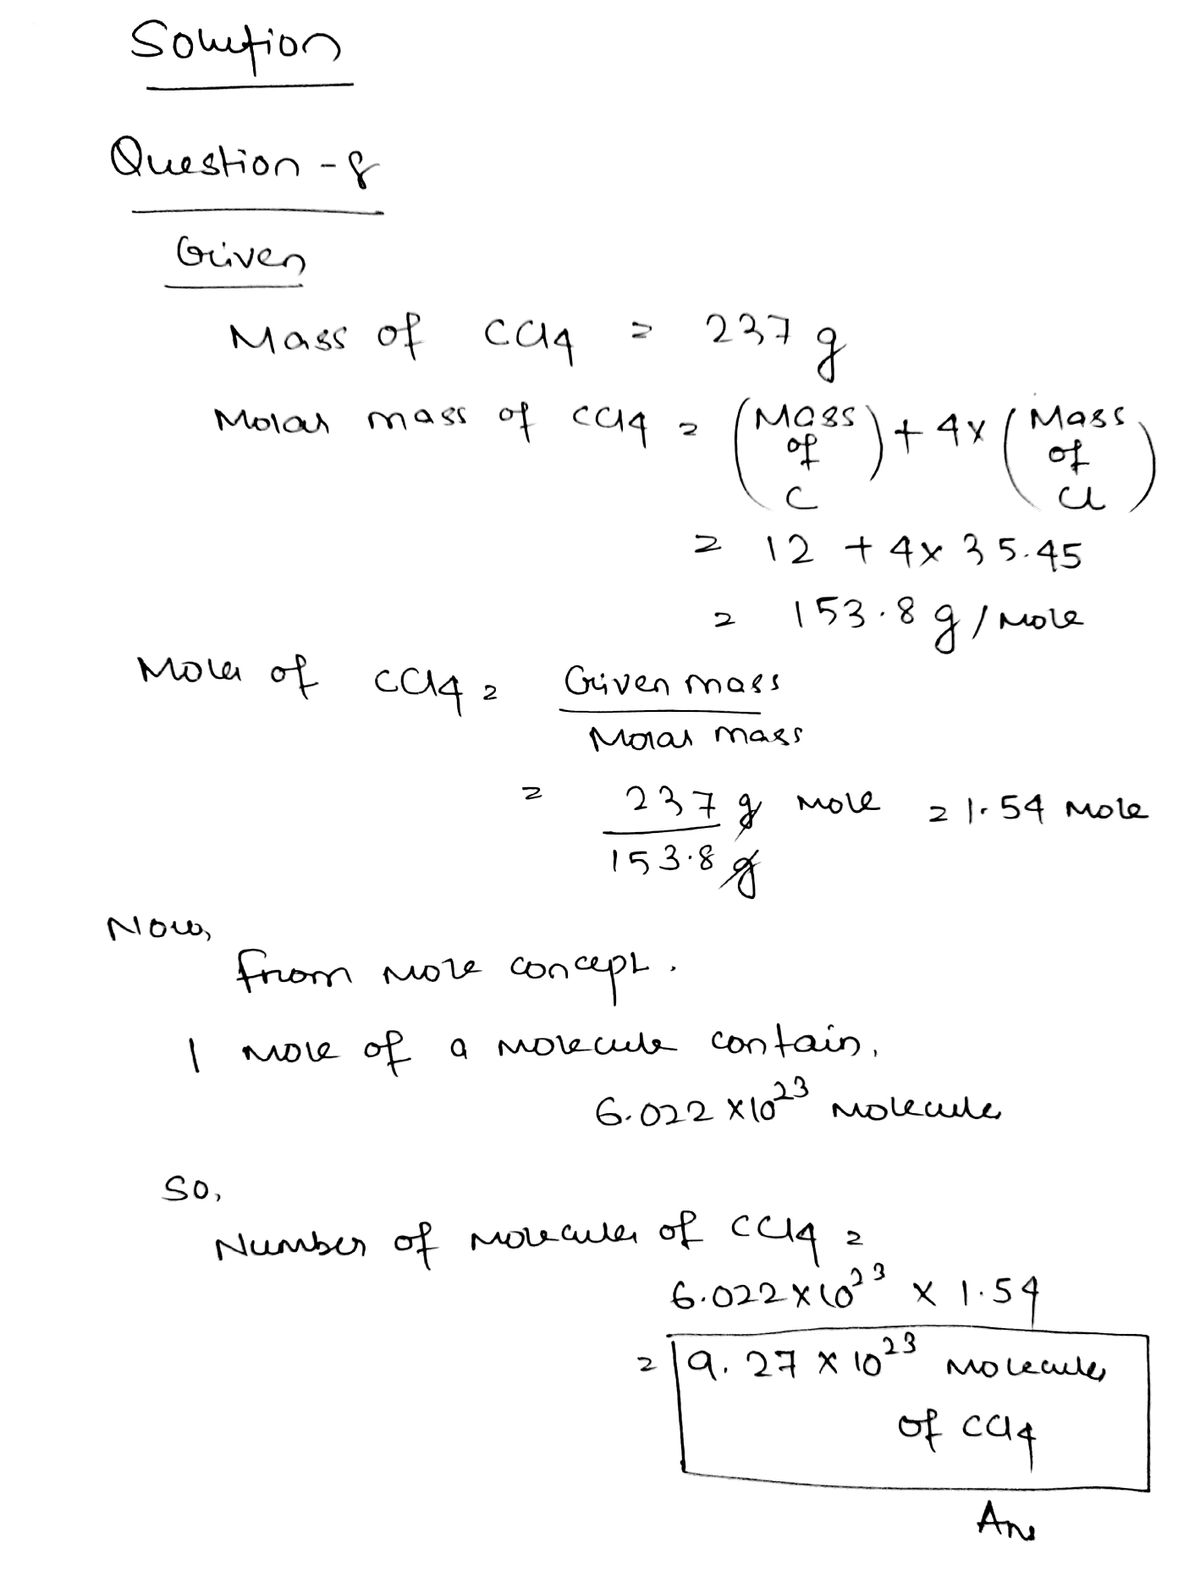 Solution
Question - 8
Given
Mass of CCl4 = 237 g
Molar mass of CCl4 = (Mass of C) + 4x (Mass of Cl)
= 12 + 4x 35.45
= 153.8 g / mole
Moles of CCl4 = Given mass
Molar mass
= 237 g mole = 1.54 mole
153.8 g
Now,
from mole concept.
1 mole of a molecule contain,
6.022 x10^23 molecules
So,
Number of molecules of CCl4 =
6.022 x 10^23 x 1.54
= 9.27 x 10^23 molecules
of CCl4
Ans